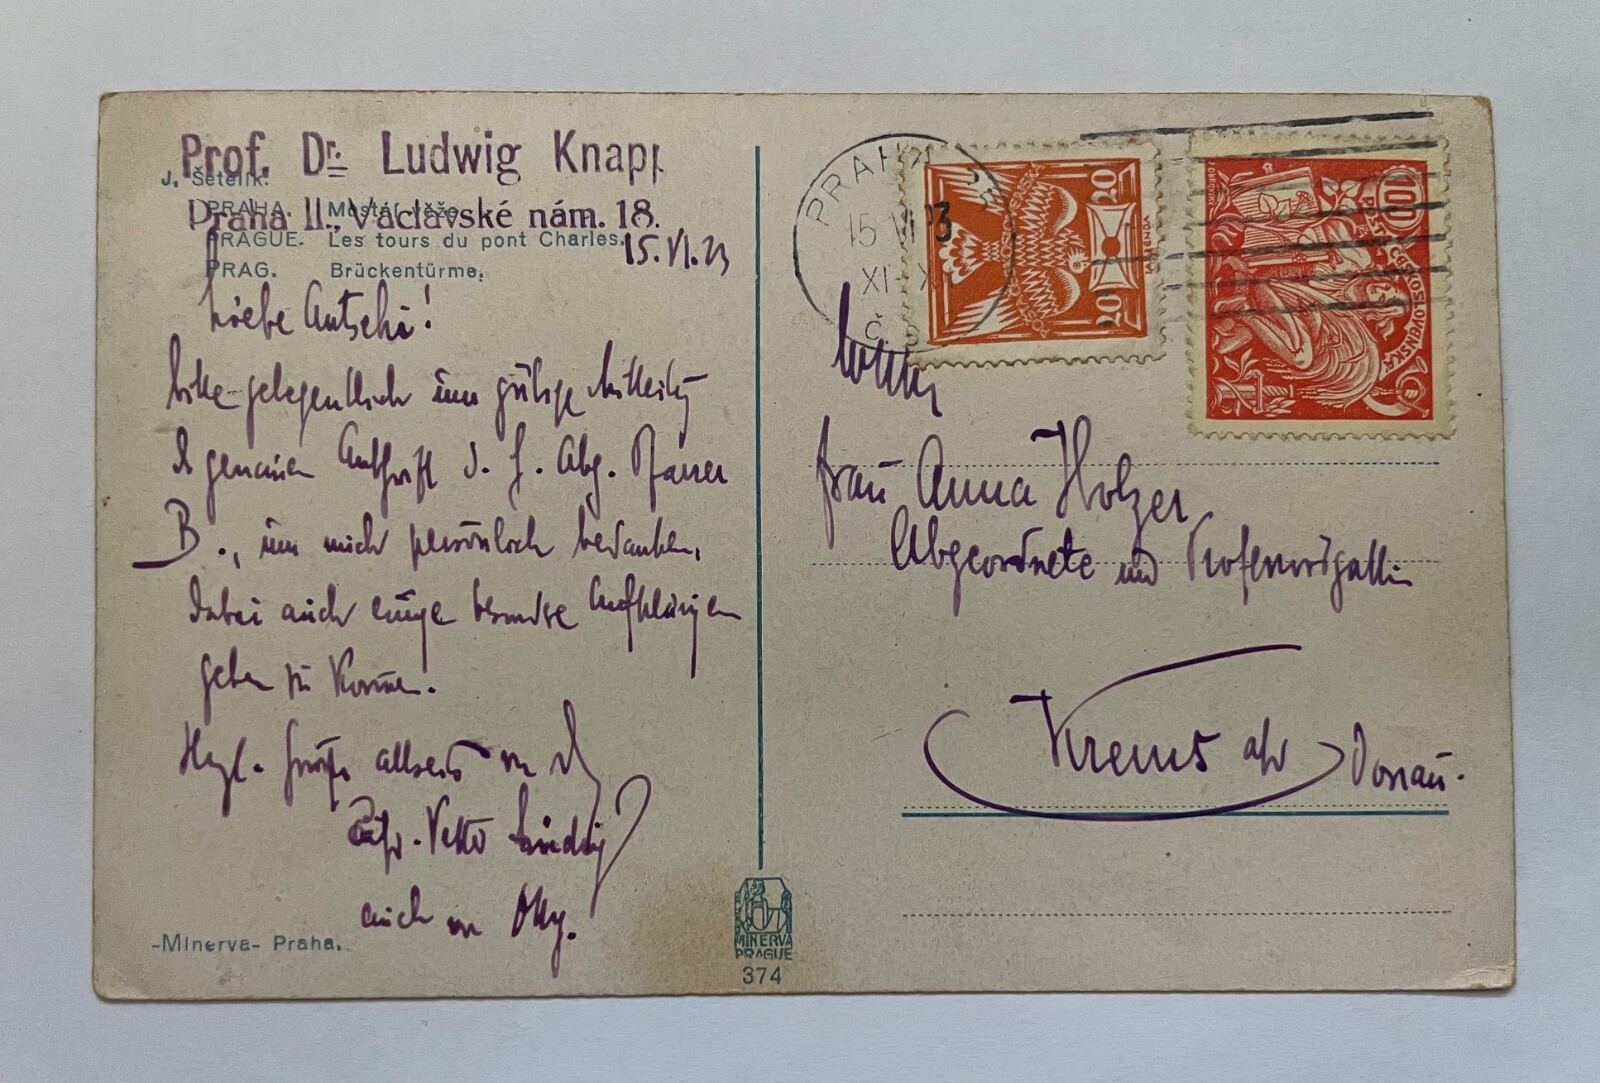 Prof. Dr. Ludwig Knapp
J. Šetelík.
Praha II., Václavské nám. 18.
PRAHA. Mostecké věže.
PRAGUE. Les tours du pont Charles.
15.VI.23
PRAG. Brückentürme.
Liebe Antschi!
Bitte gelegentlich um gütige Mitteilg
d genauen Anschrift d. H. Abg.
B., um mich persönlich bedanken,
dabei auch einige besondre Aufklärungen
geben zu können.
Hzl. Grüße allseits
auch
-Minerva- Praha.
MINERVA
PRAGUE
374
PRAHA
15 VI 23
XI-X
Č.S.
20 20
100
POŠTA ČESKOSLOVENSKÁ
Frau Anna Holzer
Abgeordnete und Professorsgattin
Krems a/d Donau.